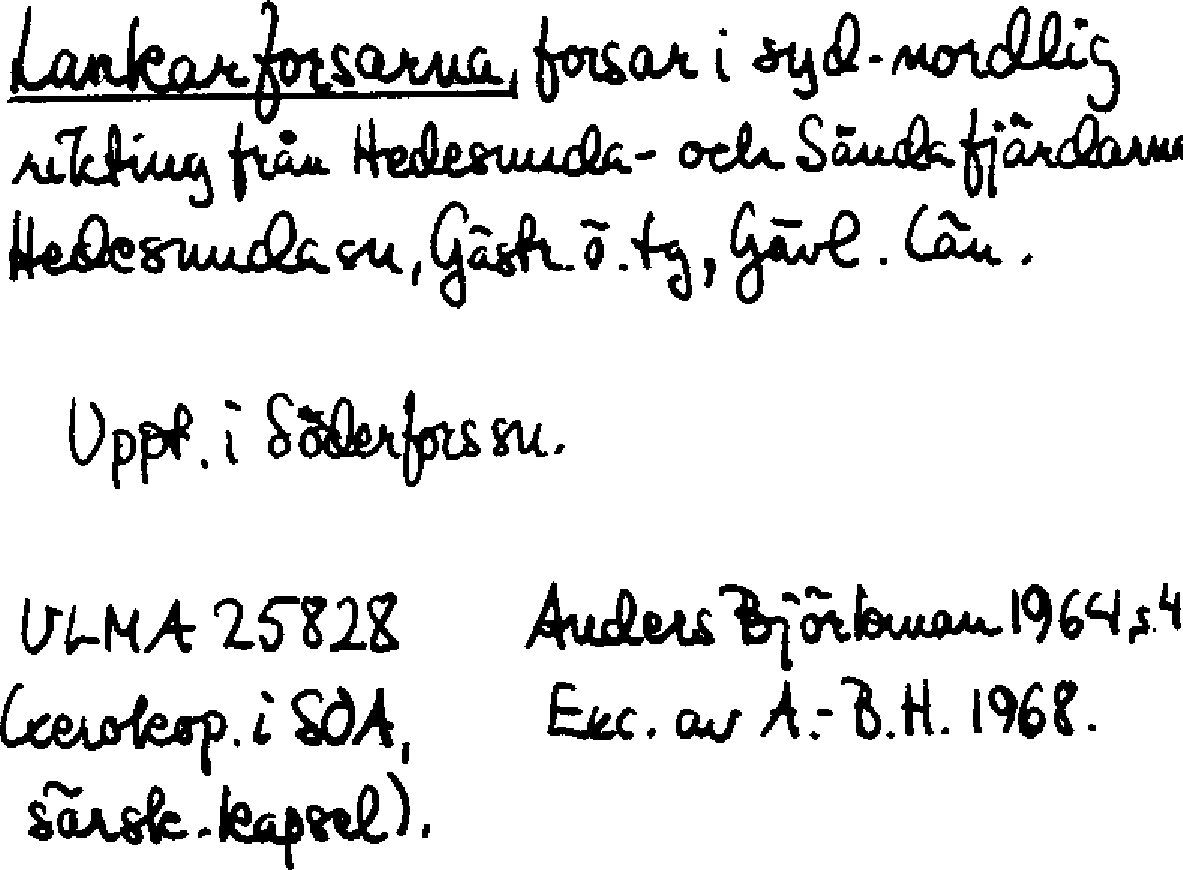 Lankarforsarna, forsar i syd-nordlig
rikting från Hedesunda- och Sändafjärdarna
Hedesunda sn, Gästr. ö. tg, Gävl. län.
Uppt. i Söderfors sn.
ULMA 25828
(xerokop. i SOA,
särsk. kapsel).
Anders Björkman 1964, s. 4
Exc. av A.-B.H. 1968.